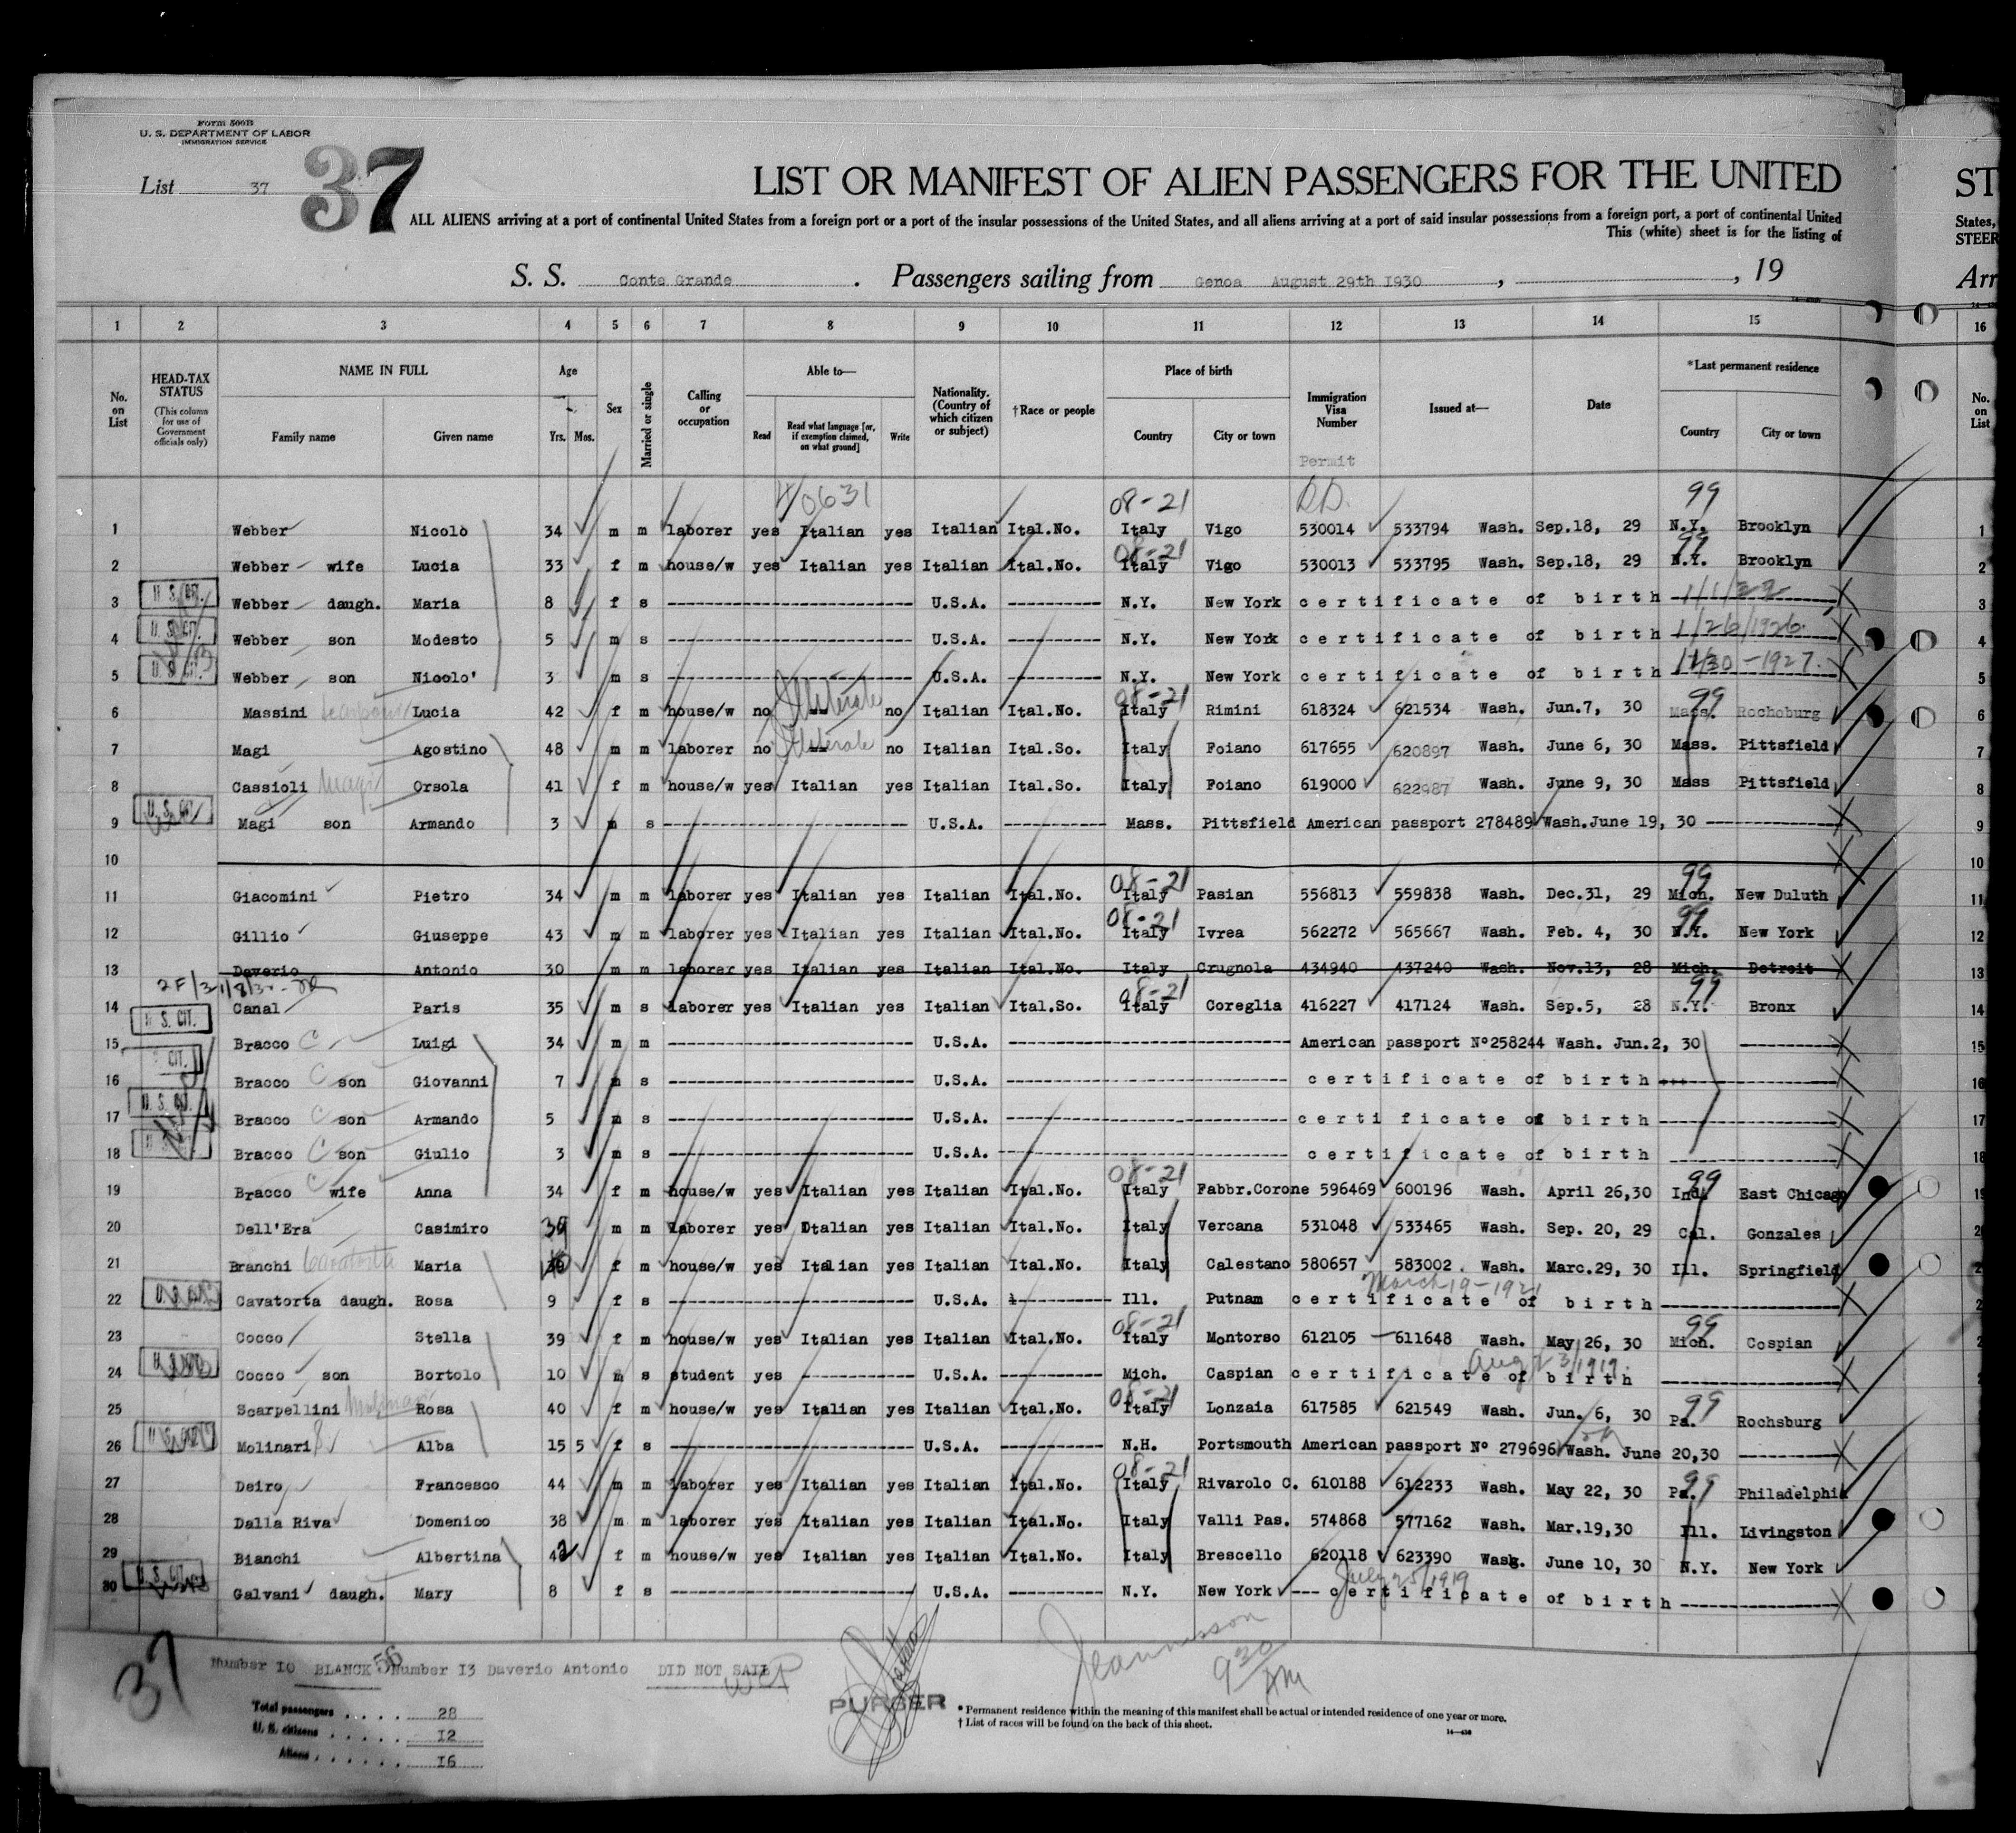 Form 500B
U. S. DEPARTMENT OF LABOR
IMMIGRATION SERVICE
List 37
37
LIST OR MANIFEST OF ALIEN PASSENGERS FOR THE UNITED
ST
ALL ALIENS arriving at a port of continental United States from a foreign port or a port of the insular possessions of the United States, and all aliens arriving at a port of said insular possessions from a foreign port, a port of continental United
States,
This (white) sheet is for the listing of
STEER
S. S. Conte Grande . Passengers sailing from Genoa August 29th 1930 , , 19
Arr
1 2 3 4 5 6 7 8 9 10 11 12 13 14 15 16
No. on List
HEAD-TAX STATUS
(This column for use of Government officials only)
NAME IN FULL
Family name Given name
Age
Yrs. Mos.
Sex
Married or single
Calling or occupation
Able to—
Read
Read what language [or, if exemption claimed, on what ground]
Write
Nationality. (Country of which citizen or subject)
†Race or people
Place of birth
Country City or town
Immigration Visa Number
Permit
Issued at—
Date
*Last permanent residence
Country City or town
No. on List
08-21 99
1 Webber Nicolò 34 m m laborer yes Italian yes Italian Ital.No. Italy Vigo 530014 533794 Wash. Sep.18, 29 N.Y. Brooklyn 1
08-21 99
2 Webber wife Lucia 33 f m house/w yes Italian yes Italian Ital.No. Italy Vigo 530013 533795 Wash. Sep.18, 29 N.Y. Brooklyn 2
3 U. S. CIT. Webber daugh. Maria 8 f s U.S.A. N.Y. New York certificate of birth 3
4 U. S. CIT. Webber son Modesto 5 m s U.S.A. N.Y. New York certificate of birth 1/26/1926. 4
5 U. S. CIT. Webber son Nicolo' 3 m s U.S.A. N.Y. New York certificate of birth 11/30-1927. 5
Illiterate 08-21 99
6 Massini Lucia 42 f m house/w no -- no Italian Ital.No. Italy Rimini 618324 621534 Wash. Jun.7, 30 Mass. Rochoburg 6
Illiterate
7 Magi Agostino 48 m m laborer no -- no Italian Ital.So. Italy Foiano 617655 620897 Wash. June 6, 30 Mass. Pittsfield 7
8 Cassioli Magi Orsola 41 f m house/w yes Italian yes Italian Ital.So. Italy Foiano 619000 622987 Wash. June 9, 30 Mass Pittsfield 8
9 U. S. CIT. Magi son Armando 3 m s U.S.A. Mass. Pittsfield American passport 278489 Wash.June 19, 30
10 10
08-21 99
11 Giacomini Pietro 34 m m laborer yes Italian yes Italian Ital.No. Italy Pasian 556813 559838 Wash. Dec.31, 29 Mich. New Duluth 11
08-21 99
12 Gillio Giuseppe 43 m m laborer yes Italian yes Italian Ital.No. Italy Ivrea 562272 565667 Wash. Feb. 4, 30 N.Y. New York 12
13 Daverio Antonio 30 m m laborer yes Italian yes Italian Ital.No. Italy Crugnola 434940 437240 Wash. Nov.13, 28 Mich. Detroit 13
08-21 99
14 Canal Paris 35 m s laborer yes Italian yes Italian Ital.So. Italy Coreglia 416227 417124 Wash. Sep.5, 28 N.Y. Bronx 14
15 U. S. CIT. Bracco C Luigi 34 m m U.S.A. American passport Nº258244 Wash. Jun.2, 30 15
16 S. CIT. Bracco C son Giovanni 7 m s U.S.A. certificate of birth 16
17 U. S. CIT. Bracco C son Armando 5 m s U.S.A. certificate of birth 17
18 Bracco C son Giulio 3 m s U.S.A. certificate of birth 18
08-21 99
19 Bracco C wife Anna 34 f m house/w yes Italian yes Italian Ital.No. Italy Fabbr.Corone 596469 600196 Wash. April 26,30 Ind. East Chicago
20 Dell'Era Casimiro m m laborer yes Italian yes Italian Ital.No. Italy Vercana 531048 533465 Wash. Sep. 20, 29 Cal. Gonzales
21 Branchi Maria f m house/w yes Italian yes Italian Ital.No. Italy Calestano 580657 583002. Wash. Marc.29, 30 Ill. Springfield
March-19-1921
22 Cavatorta daugh. Rosa 9 f s U.S.A. Ill. Putnam certificate of birth
08-21 99
23 Cocco Stella 39 f m house/w yes Italian yes Italian Ital.No. Italy Montorso 612105 611648 Wash. May 26, 30 Mich. Cospian
24 Cocco son Bortolo 10 m s student yes U.S.A. Mich. Caspian certificate of birth
08-21 99
25 Scarpellini Rosa 40 f m house/w yes Italian yes Italian Ital.No. Italy Lonzaia 617585 621549 Wash. Jun. 6, 30 Pa. Rochsburg
26 Molinari Alba 15 5 f s U.S.A. N.H. Portsmouth American passport Nº 279696 Wash. June 20,30
08-21 99
27 Deiro Francesco 44 m m laborer yes Italian yes Italian Ital.No. Italy Rivarolo C. 610188 612233 Wash. May 22, 30 Pa. Philadelphia
28 Dalla Riva Domenico 38 m m laborer yes Italian yes Italian Ital.No. Italy Valli Pas. 574868 577162 Wash. Mar.19,30 Ill. Livingston
29 Bianchi Albertina 42 f m house/w yes Italian yes Italian Ital.No. Italy Brescello 620118 623390 Wash. June 10, 30 N.Y. New York
30 U. S. CIT. Galvani daugh. Mary 8 f s U.S.A. N.Y. New York certificate of birth
37
Number 10 BLANCK Number 13 Daverio Antonio DID NOT SAIL
Total passengers . . . . 28
U. S. citizens . . . . . 12
Aliens . . . . . . 16
PURSER
9 30 AM
* Permanent residence within the meaning of this manifest shall be actual or intended residence of one year or more.
† List of races will be found on the back of this sheet.